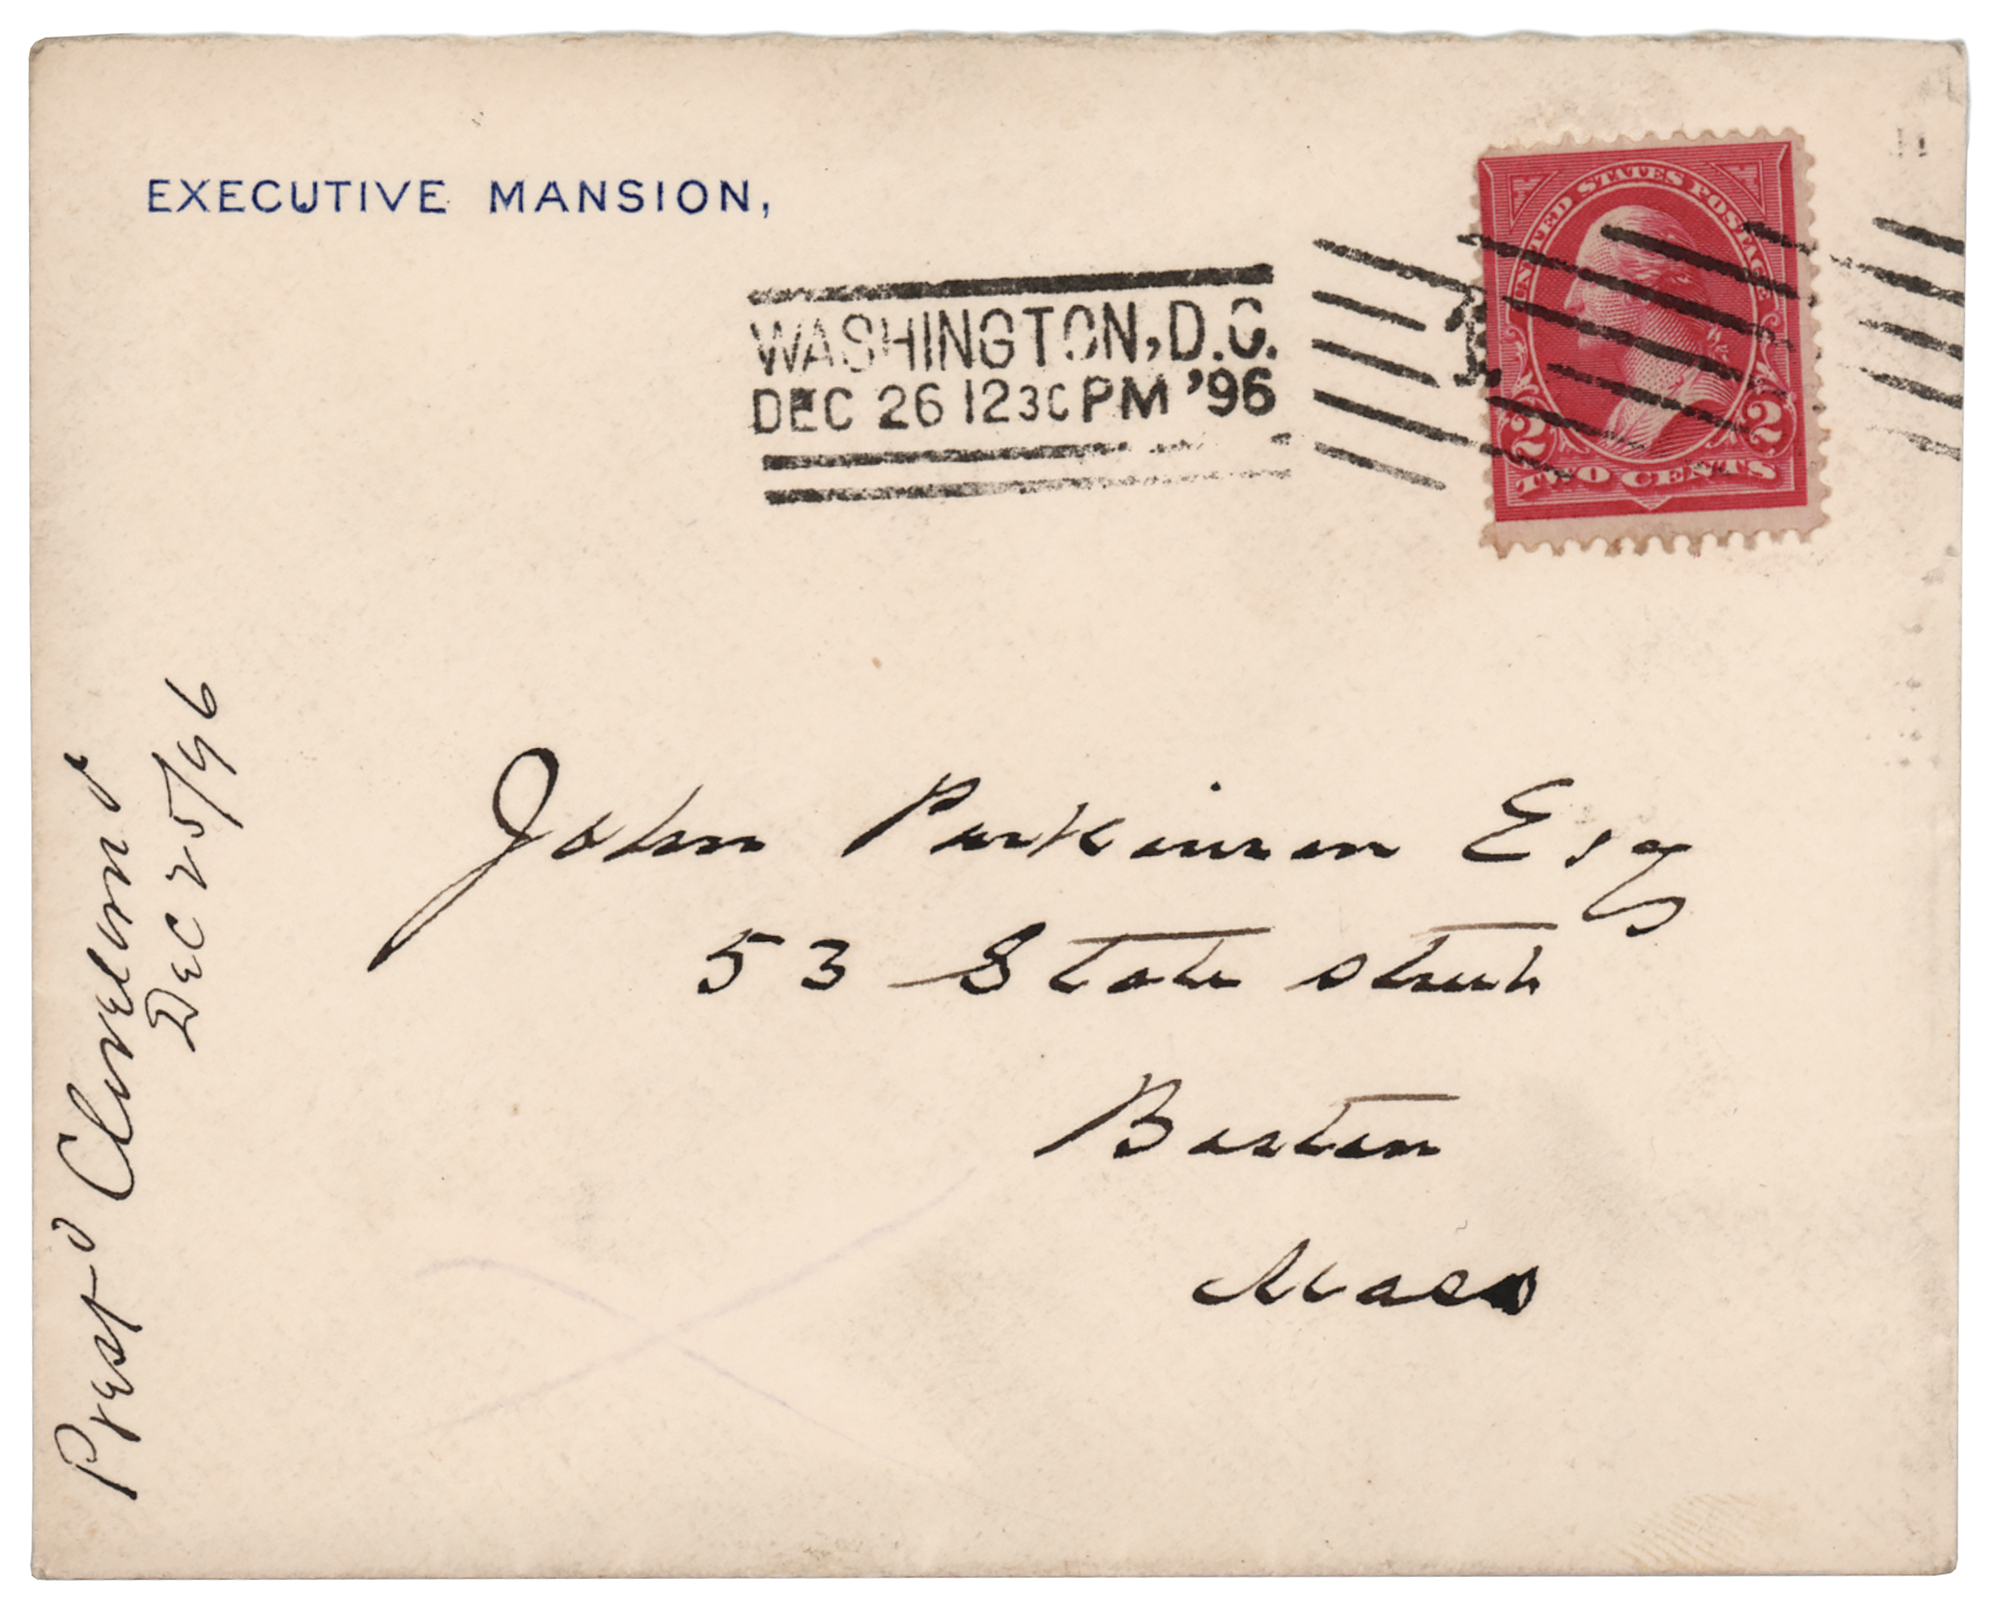 EXECUTIVE MANSION,
UNITED STATES POSTAGE
2 2
TWO CENTS
WASHINGTON, D.C.
DEC 26 1230 PM '96
John Parkinson Esq
53 State street
Boston
Mass
Prest Cleveland
Dec 25/96